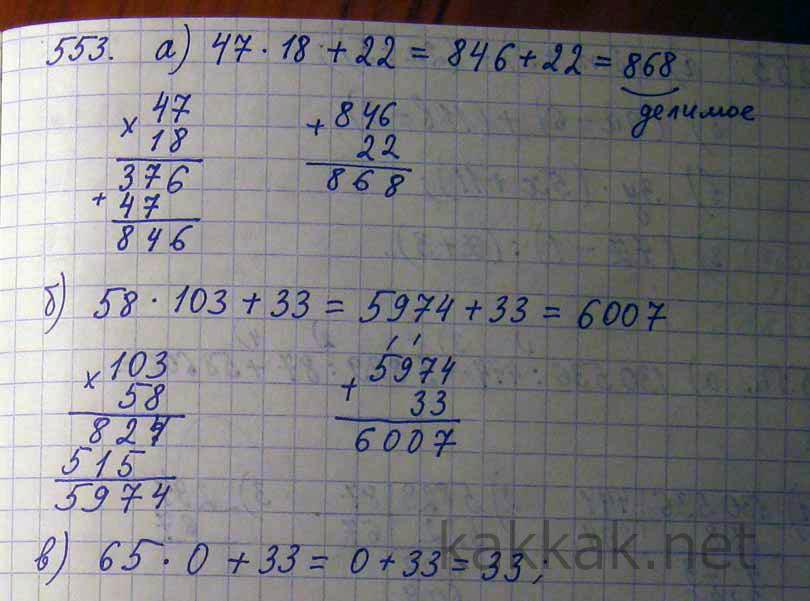 553. а) 47 · 18 + 22 = 846 + 22 = 868
делимое
× 47
18
376
+ 47
846
+ 846
22
868
б) 58 · 103 + 33 = 5974 + 33 = 6007
× 103
58
824
515
5974
+ 5974
33
6007
в) 65 · 0 + 33 = 0 + 33 = 33;
kakkak.net